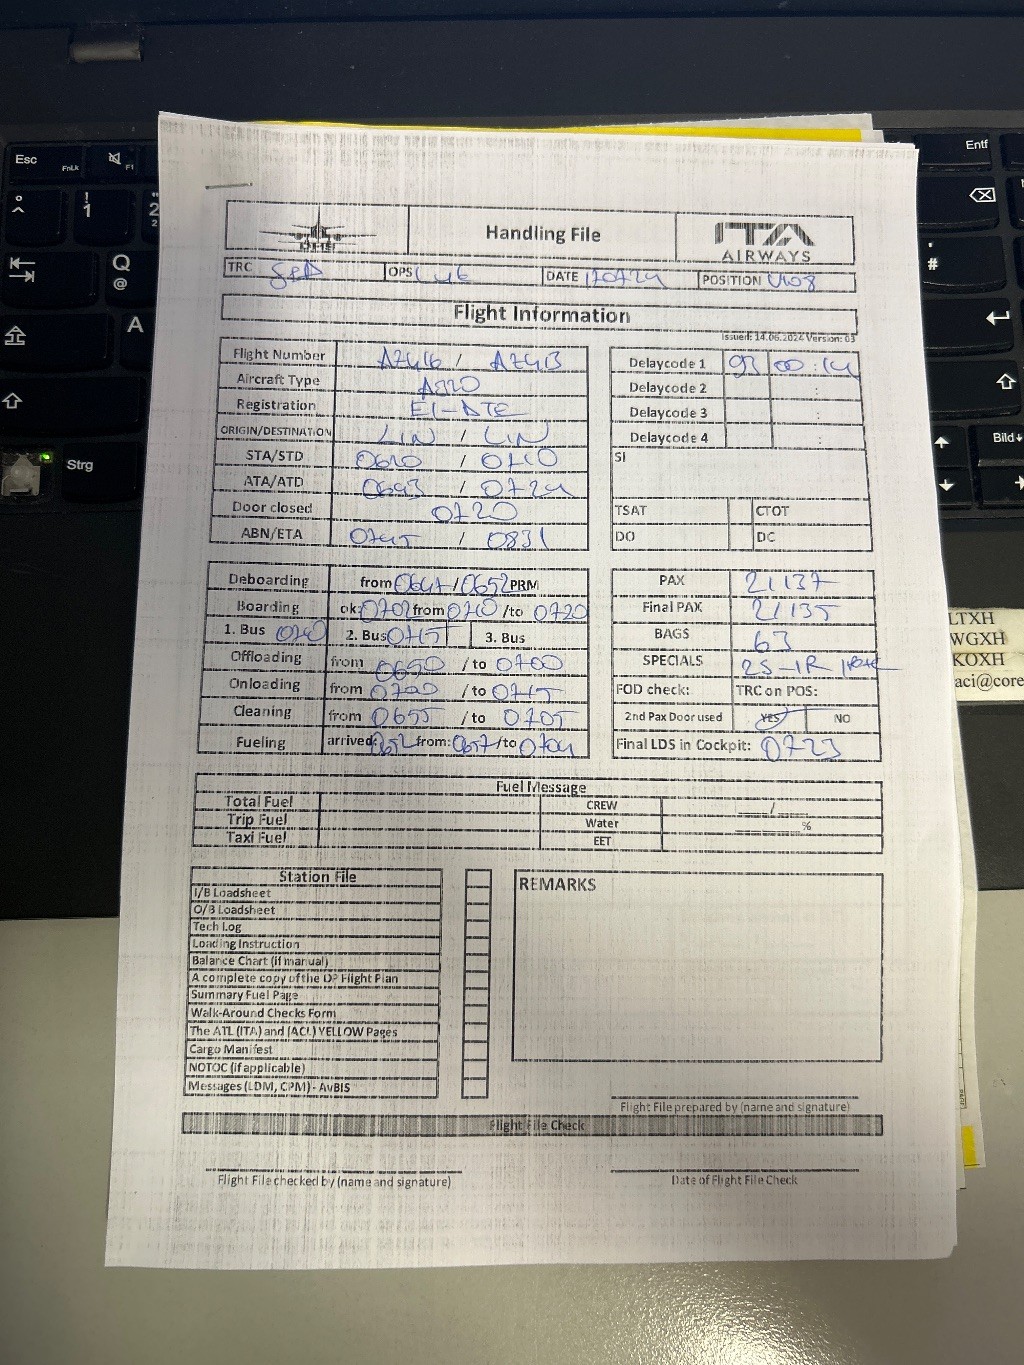 Esc
FnLk
F1
Entf
!
1
2
Q
@
A
#
Strg
Bild
Handling File
ITA
AIRWAYS
TRC SED OPS DATE 120724 POSITION V108
Flight Information
Issued: 14.06.2024 Version: 03
Flight Number AZ416 / AZ413
Aircraft Type A320
Registration EI-DTE
ORIGIN/DESTINATION LIN / LIN
STA/STD 0620 / 0710
ATA/ATD 0643 / 0724
Door closed 0720
ABN/ETA 0745 / 0831
Delaycode 1 93 00:14
Delaycode 2 :
Delaycode 3 :
Delaycode 4 :
SI
TSAT CTOT
DO DC
Deboarding from 0647 / 0652 PRM
Boarding ok: 0702 from 0710 /to 0720
1. Bus 0710 2. Bus 0715 3. Bus
Offloading from 0650 /to 0700
Onloading from 0700 /to 0715
Cleaning from 0655 /to 0705
Fueling arrived: 0652 from: 0657 /to 0704
PAX 2/137
Final PAX 2/135
BAGS 63
SPECIALS
FOD check: TRC on POS:
2nd Pax Door used YES NO
Final LDS in Cockpit: 0723
Fuel Message
Total Fuel CREW ____/____
Trip Fuel Water ________%
Taxi Fuel EET
Station File
I/B Loadsheet
O/B Loadsheet
Tech Log
Loading Instruction
Balance Chart (if manual)
A complete copy of the OP Flight Plan
Summary Fuel Page
Walk-Around Checks Form
The ATL (ITA) and (ACL) YELLOW Pages
Cargo Manifest
NOTOC (if applicable)
Messages (LDM, CPM) - AvBIS
REMARKS
Flight File prepared by (name and signature)
Flight File Check
Flight File checked by (name and signature)
Date of Flight File Check
LTXH
WGXH
KOXH
aci@core